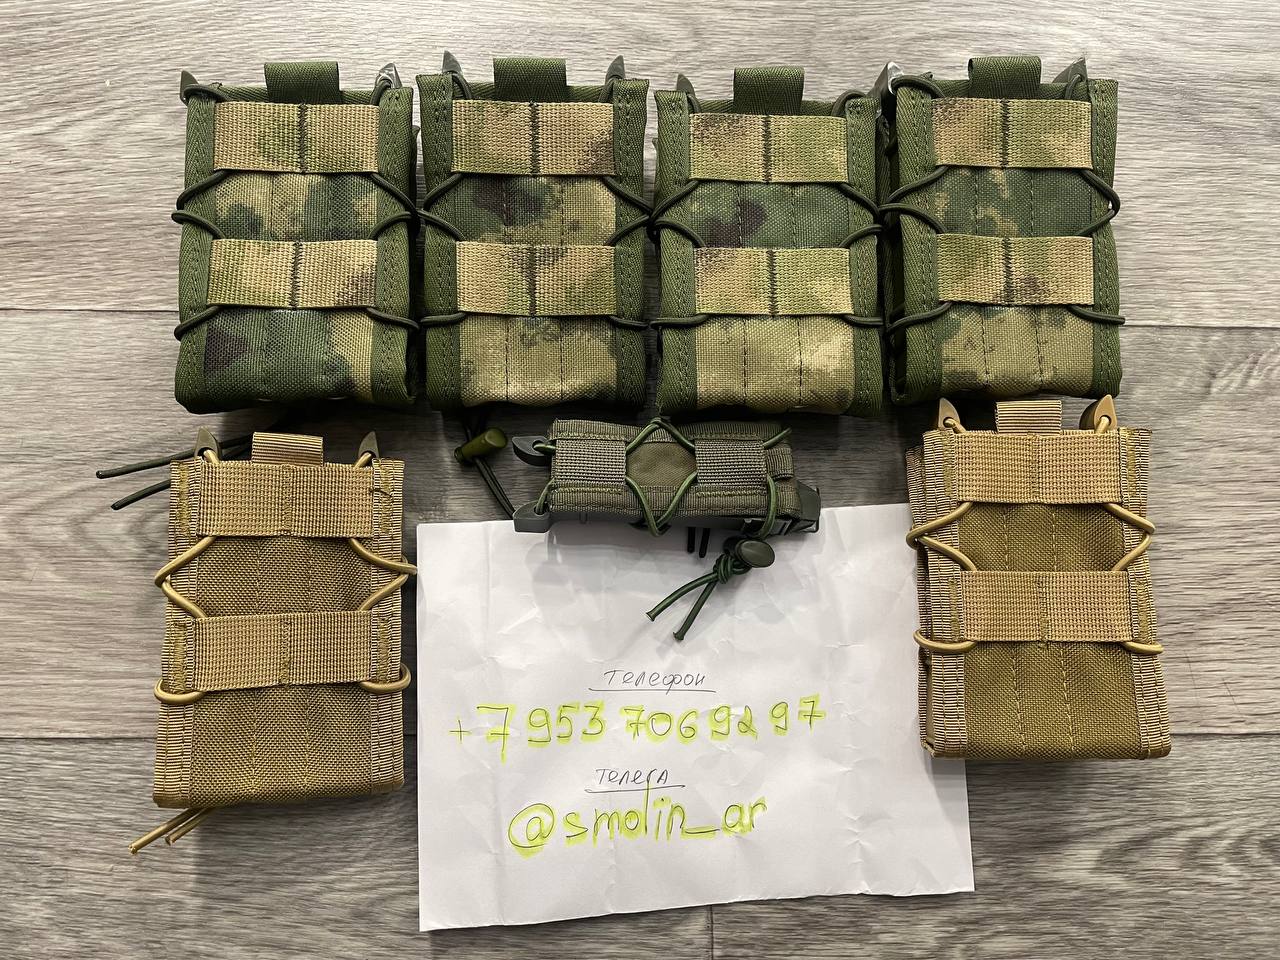 Телефон
+7 953 706 92 97
Телега
@smolin_ar